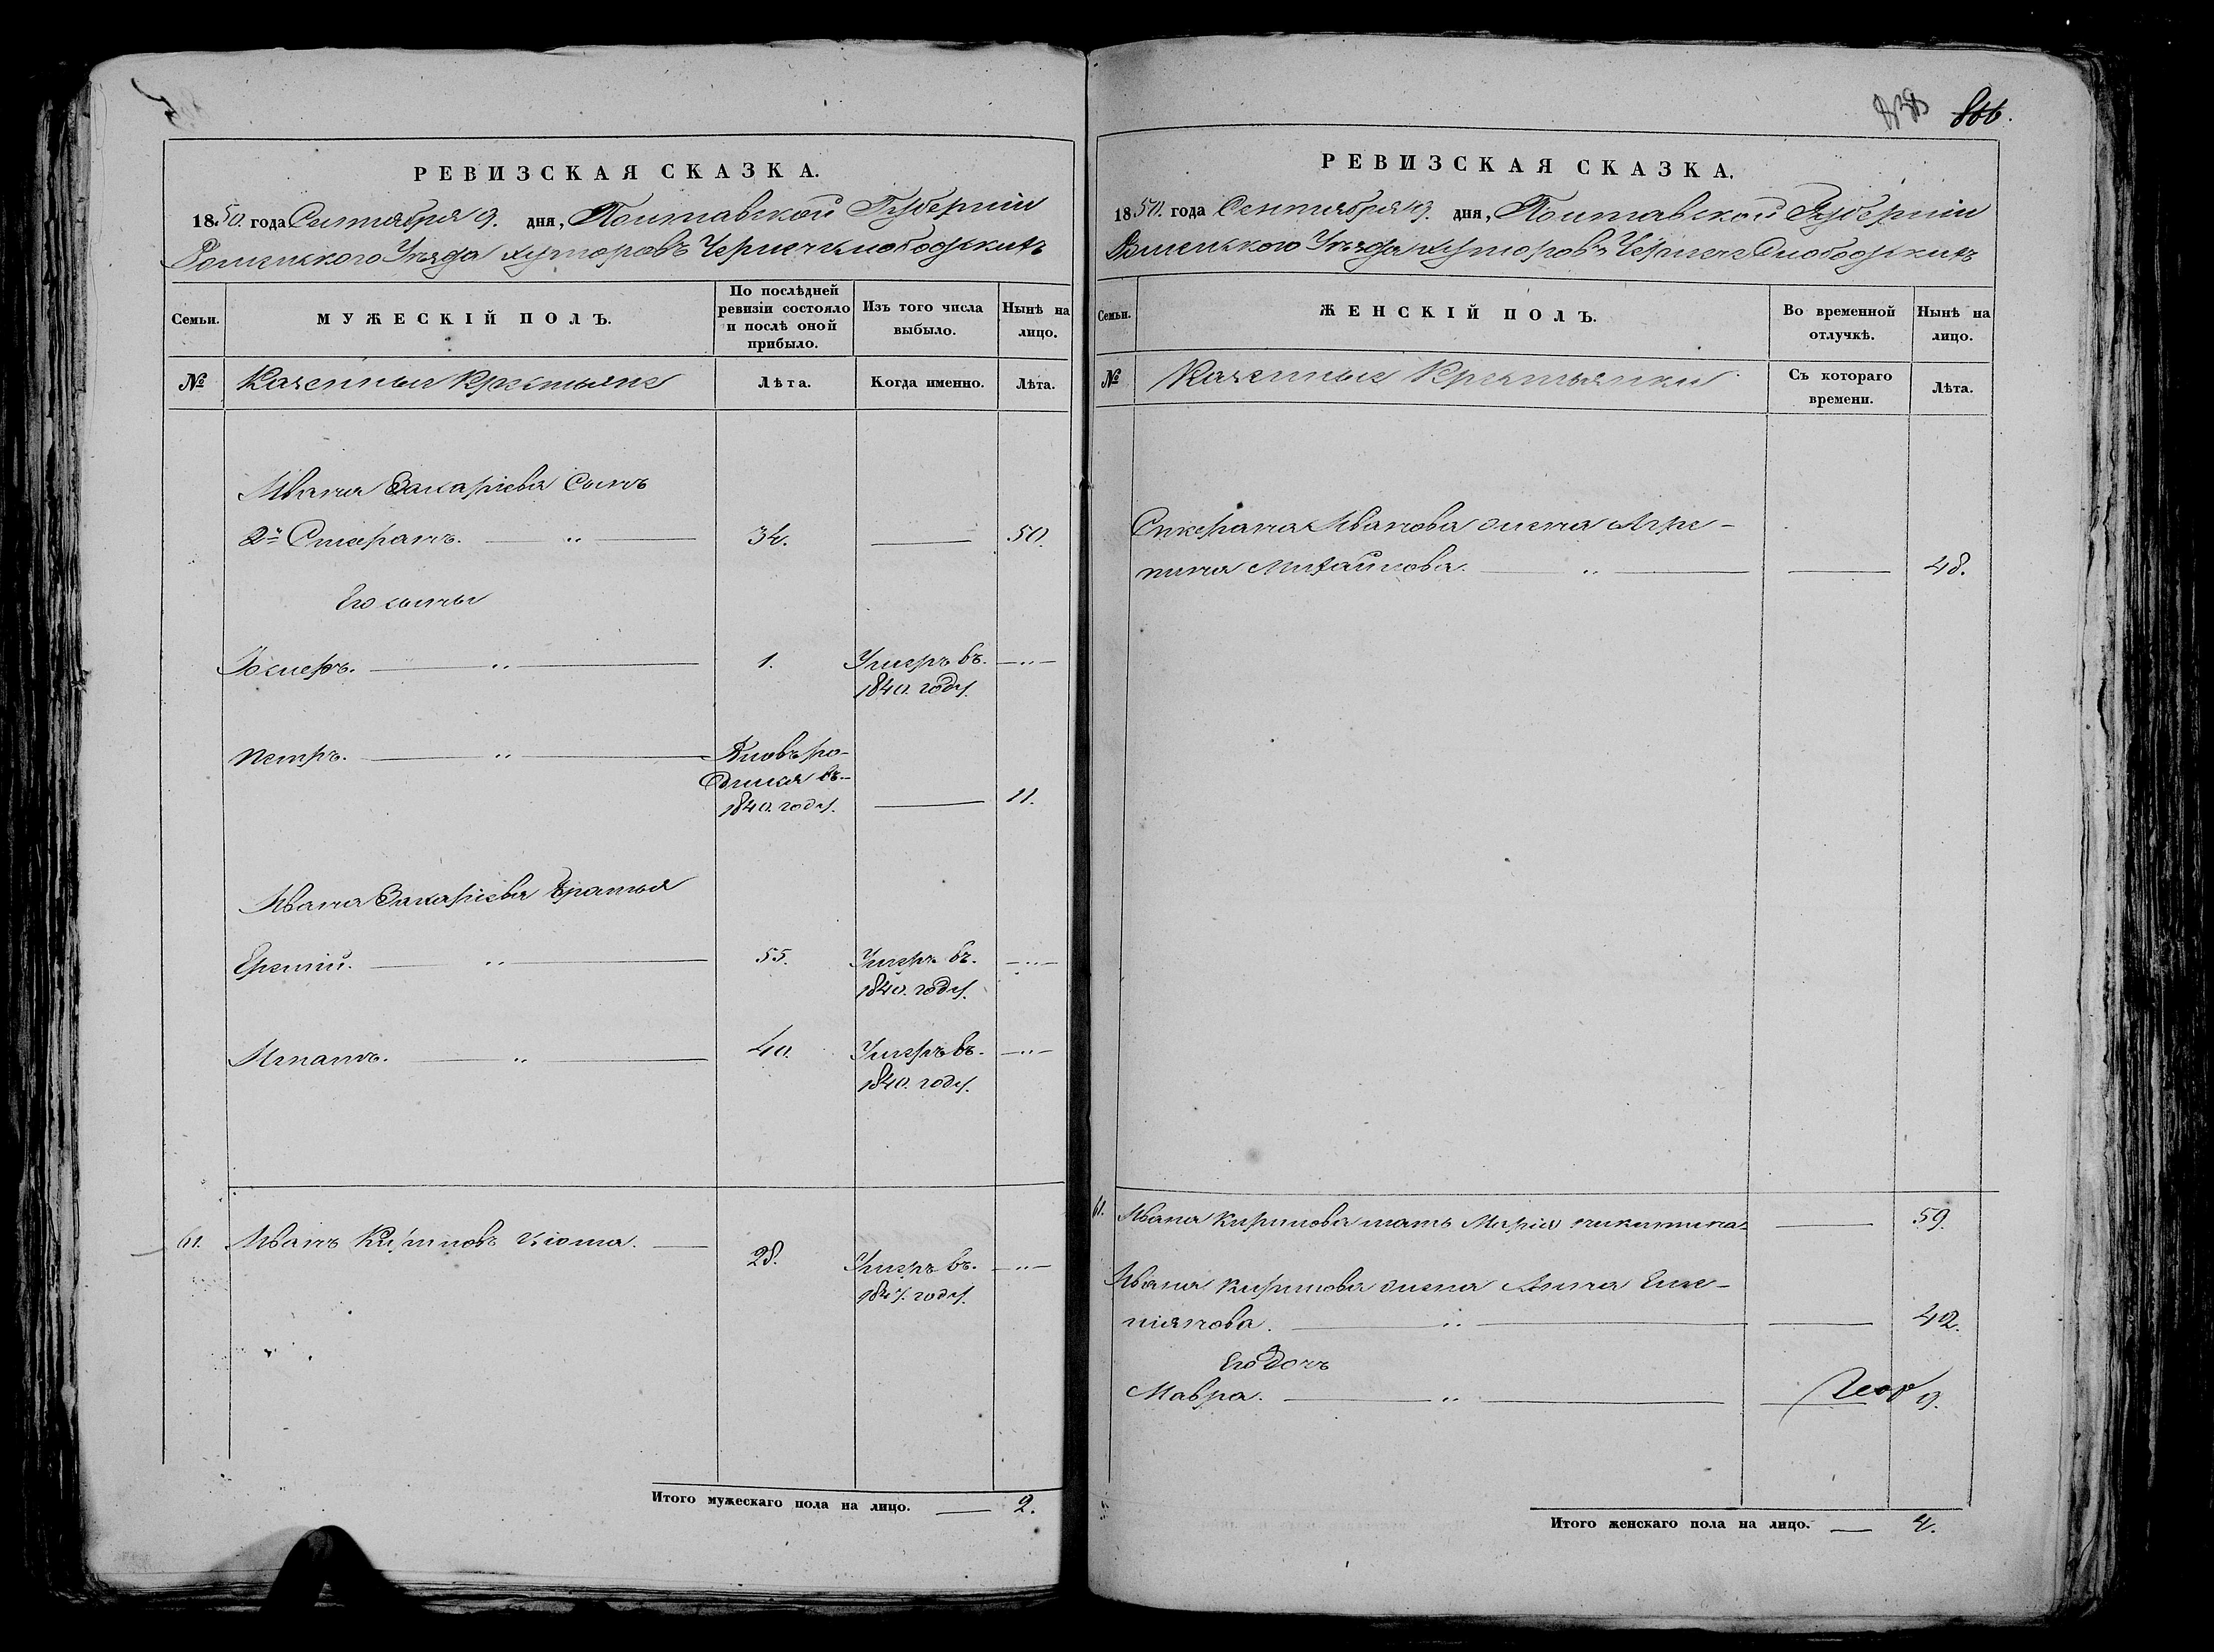 866.
РЕВИЗСКАЯ СКАЗКА.
1850. года Сентября 9. дня, Полтавской Губерніи
Роменского Уезда хуторовъ Чернечеслободскихъ
Семьи.
МУЖЕСКІЙ ПОЛЪ.
По послѣдней ревизіи состояло и послѣ оной прибыло.
Изъ того числа выбыло.
Нынѣ на лицо.
№ Казенные Крестьяне
Лѣта. Когда именно. Лѣта.
Ивана Захаріева Сынъ
2й Стефанъ. 34. 50.
Его сыны
Іосифъ. 1. Умеръ въ
1840. году.
Петръ. Вновь ро-
дился въ
1840. году. 11.
Ивана Захаріева братья
Еремій. 55. Умеръ въ
1840. году.
Игнатъ. 40. Умеръ въ
1840. году.
61. Иванъ Кириловъ 28. Умеръ въ
1847. году.
Итого мужескаго пола на лицо. 2.
РЕВИЗСКАЯ СКАЗКА.
1850. года Сентября 9. дня, Полтавской Губерніи
Роменского Уезда хуторовъ Чернечеслободскихъ
Семьи.
ЖЕНСКІЙ ПОЛЪ.
Во временной отлучкѣ.
Нынѣ на лицо.
№ Казенные Крестьянки
Съ котораго времени. Лѣта.
Стефана Иванова жена Агре-
пина Михайлова. 48.
61. Ивана Кирилова мать Марія Никитина 59.
Ивана Кирилова жена Анна Еме-
ліянова. 42.
Его дочь
Мавра. 9.
Итого женскаго пола на лицо. 4.